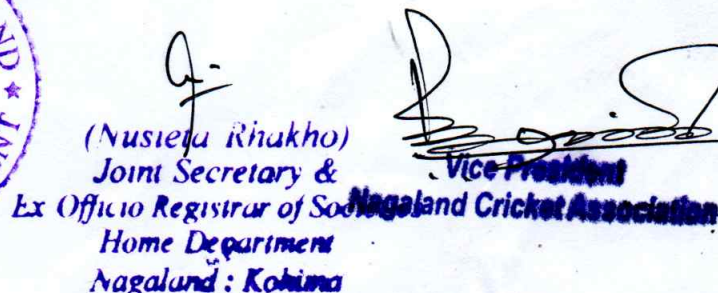 ND ★
ENT ★
(Nusieta Rhakho)
Joint Secretary &
Ex Officio Registrar of Societies
Home Department
Nagaland : Kohima
Vice President
Nagaland Cricket Association